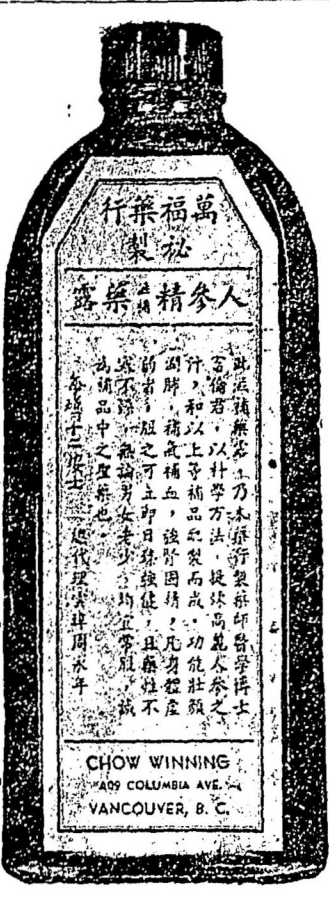 萬福藥行
秘製
人參精滋補藥露
此滋補藥露，乃本藥行製藥師醫學博士
倫君，以科學方法，提煉高麗人參之
汁，和以上等補品配製而成。功能壯顏
潤肺，補氣補血，強腎固精，凡身體虛
弱者，服之可立即日臻強健，且藥性不
寒不燥，無論男女老少，均宜常服，誠
為補品中之聖藥也。
十二安士 總代理雲埠周永年
CHOW WINNING
409 COLUMBIA AVE.
VANCOUVER, B. C.